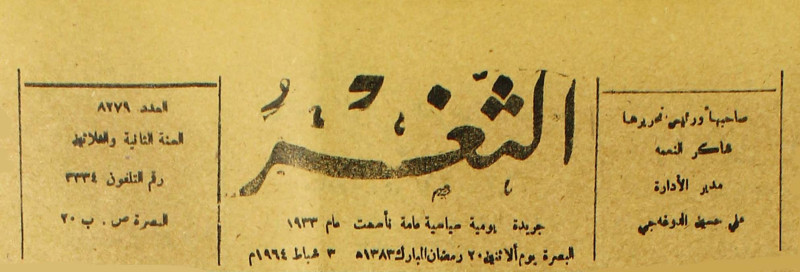 صاحبها ورئيس تحريرها
شاكر النعمه
مدير الأدارة
علي حسين الدوغه جي
الثغر
جريدة يومية سياسية عامة تأسست عام ١٩٣٣
البصرة يوم ألاثنين ٢٠ رمضان المبارك ١٣٨٣ه ٣ شباط ١٩٦٤م
العدد ٨٢٧٩
السنة الثانية والثلاثين
رقم التلفون ٣٣٣٤
البصرة ص . ب ٢٠